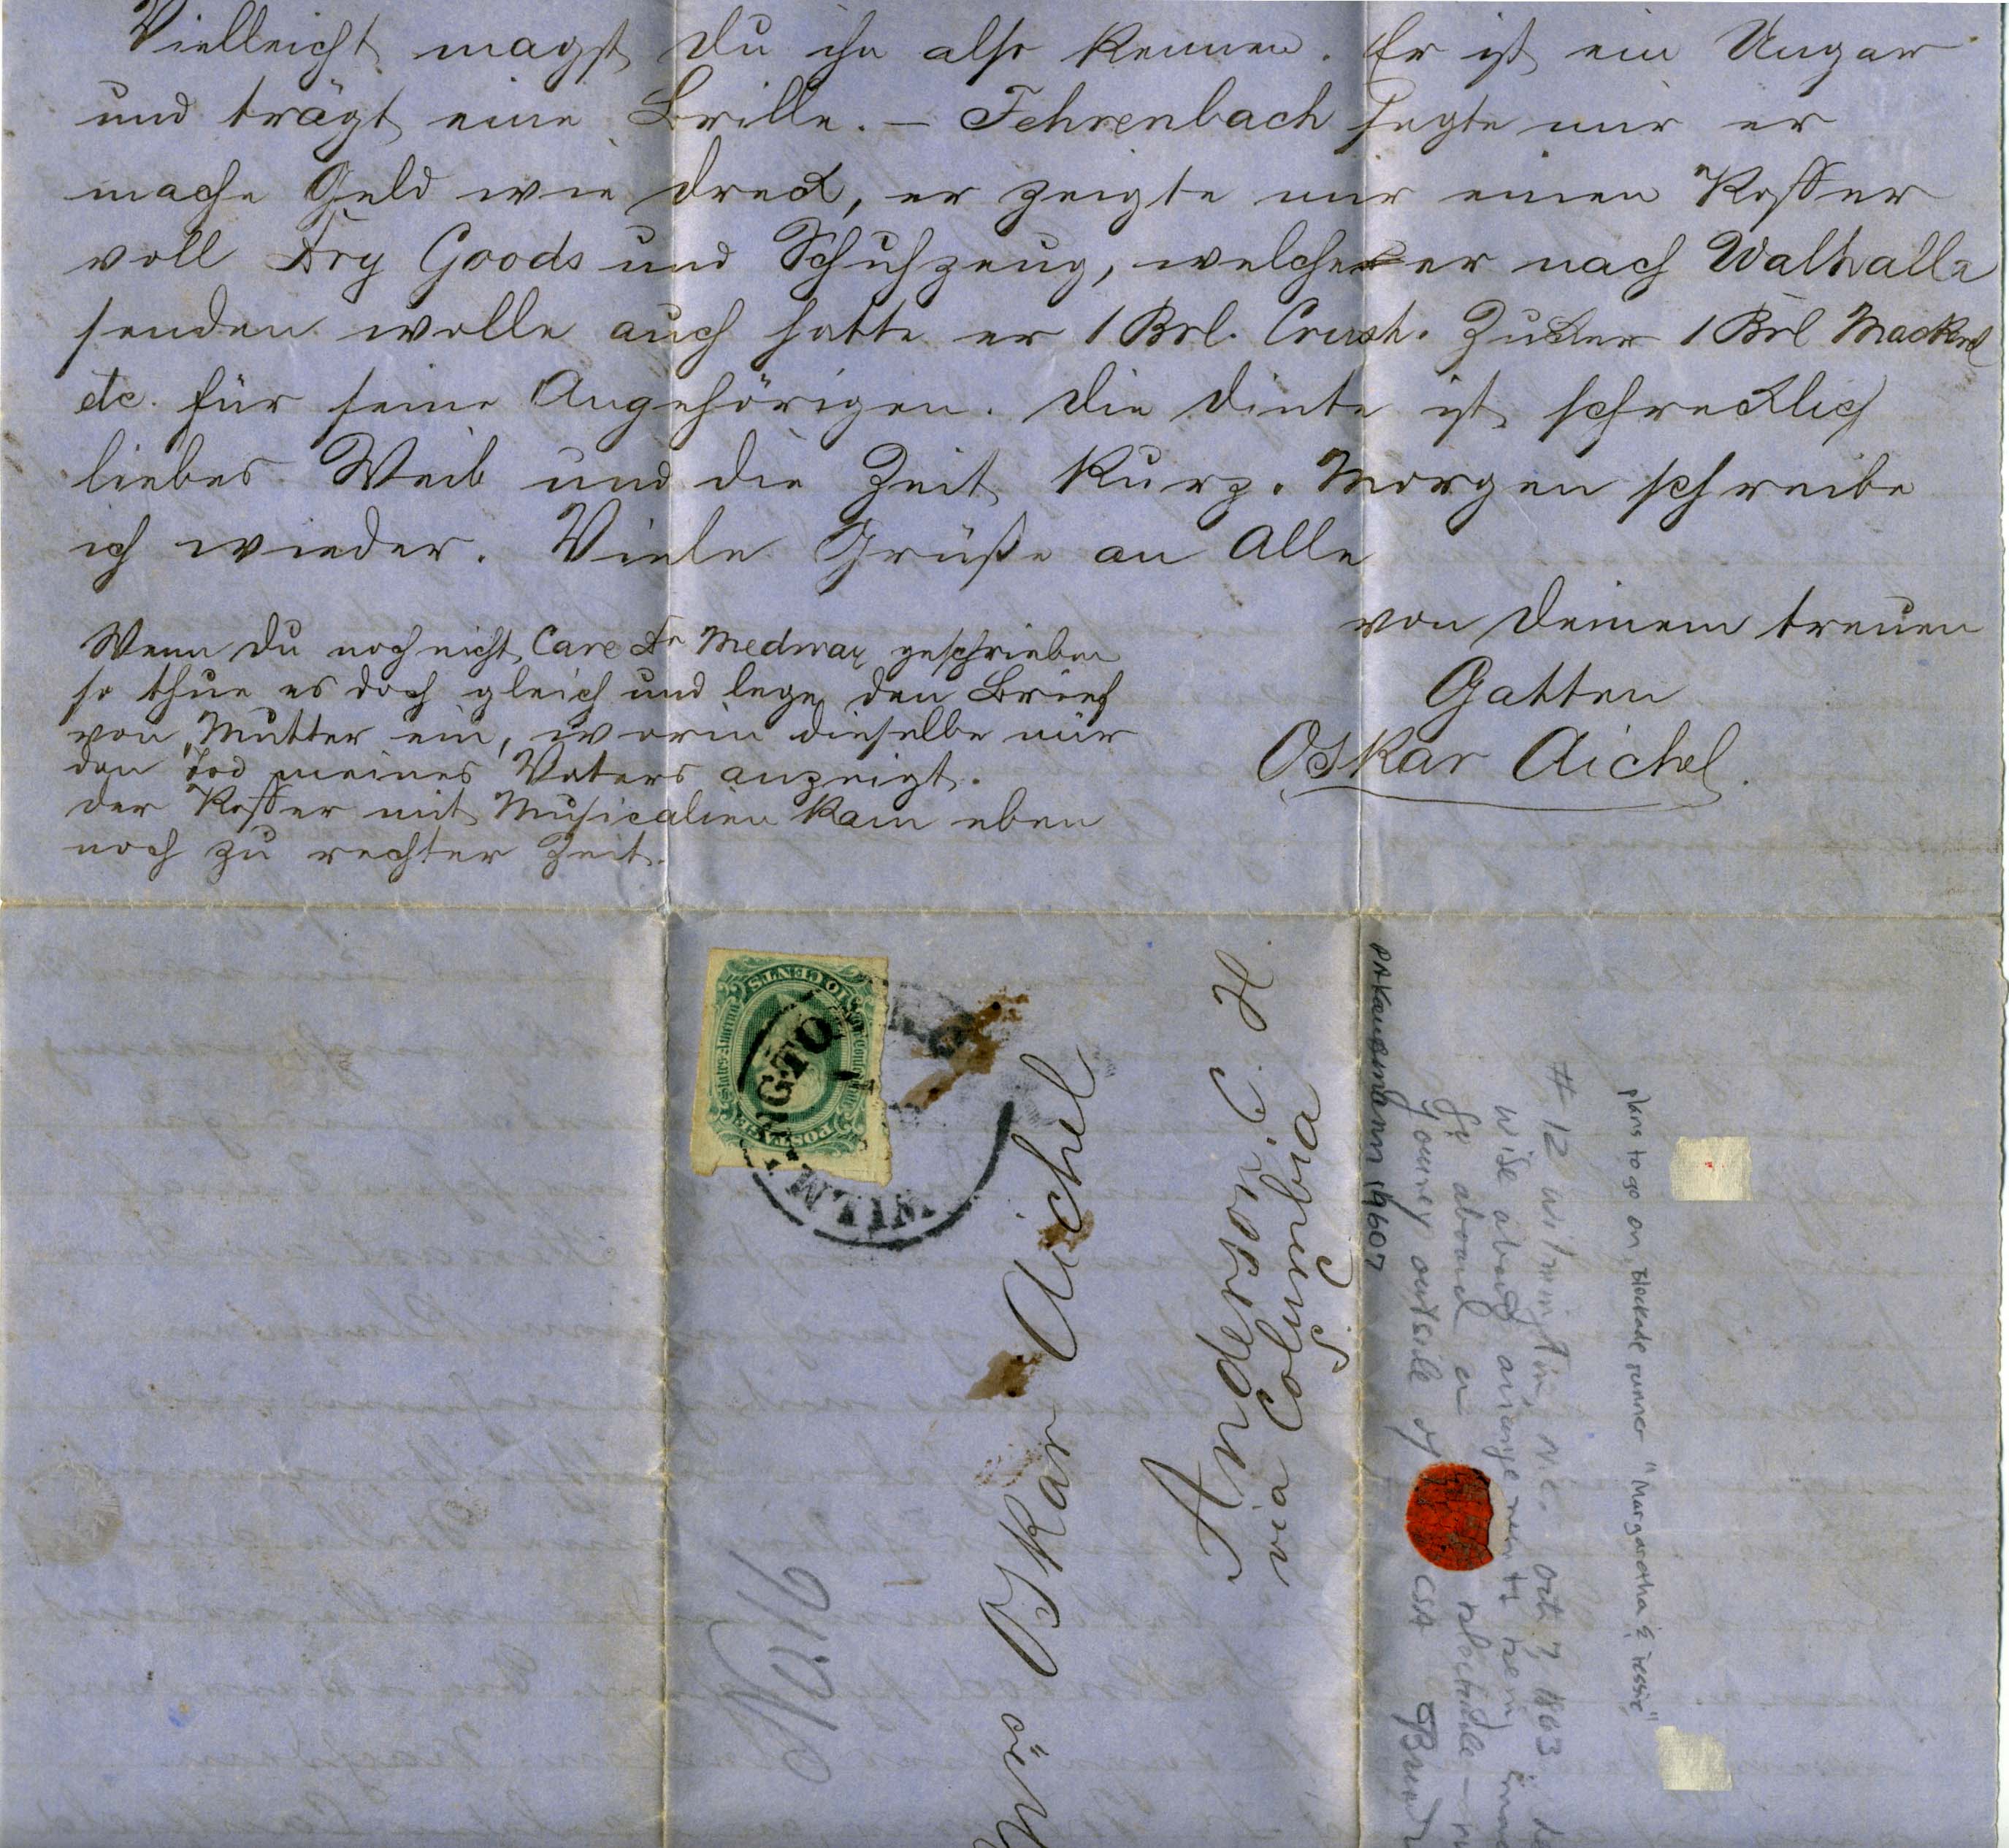 Vielleicht magst Du ihn also kennen. Er ist ein Ungar
und trägt eine Brille. – Fehrenbach sagte mir er
mache Geld wie Dreck, er zeigte mir einen Koffer
voll Dry Goods und Schuhzeug, welches er nach Walhalla
senden wolle auch hatte er 1 Brl. Crush. Zucker 1 Brl Mackerel
etc. für seine Angehörigen. Die Dinte ist schrecklich
liebes Weib und die Zeit kurz. Morgen schreibe
ich wieder. Viele Grüße an Alle
von Deinem treuen
Gatten
Oskar Aichel.
Wenn Du noch nicht Care Dr Medway geschrieben
so thue es doch gleich und lege den Brief
von Mutter ein, worin dieselbe mir
den Tod meines Vaters anzeigt.
Der Koffer mit Musicalien kam eben
noch zu rechter Zeit.
TEN CENTS
POSTAGE
WILMINGTO
Oskar Aichel
Anderson C. H.
via Columbia
S. C.
PAKaufmann 19607
plans to go on blockade runner "Margaretha & Jessie"
# 12 Wilmington, N.C. Oct 7, 1863
wife about arrangements
go aboard a blockade
journey outside of CSA